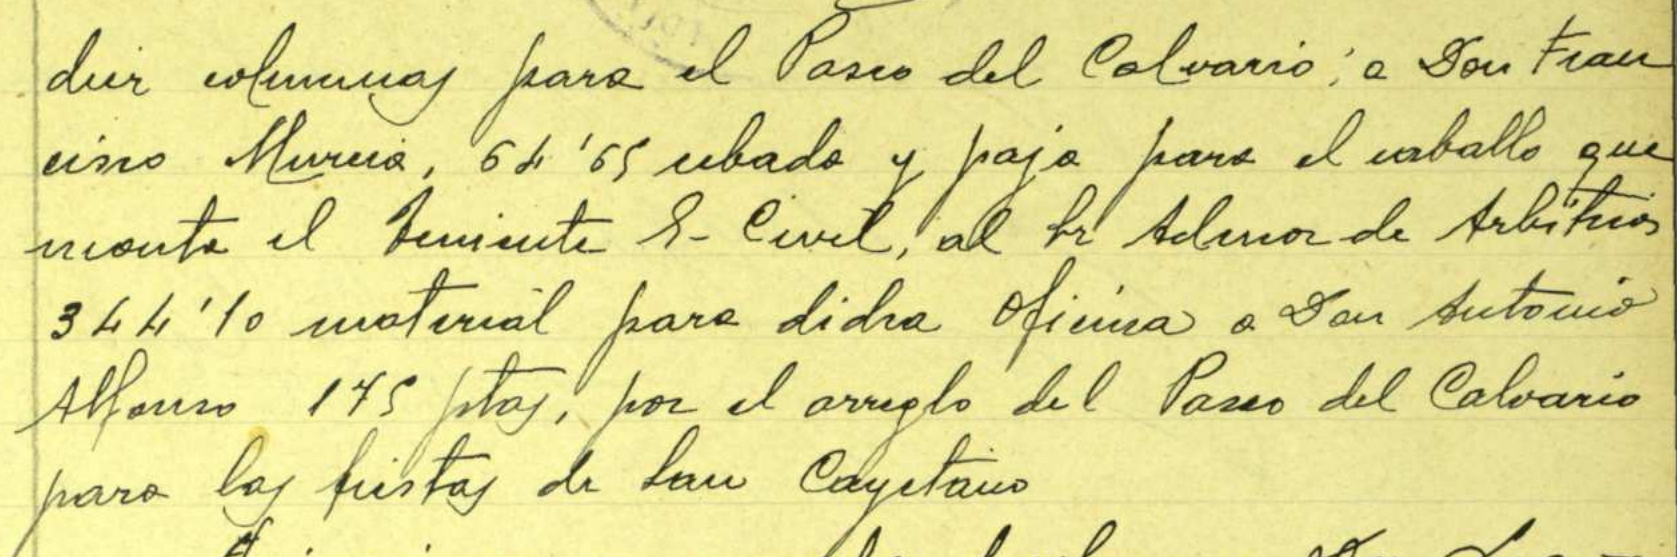 diez columnas para el Paseo del Calvario; a Don Fran
cisco Murcia, 64'65 cebada y paja para el caballo que
monta el Teniente G- Civil, al Sr Admor de Arbitrios
344'10 material para dicha Oficina a Don Antonio
Alfonso 175 ptas, por el arreglo del Paseo del Calvario
para las fiestas de San Cayetano